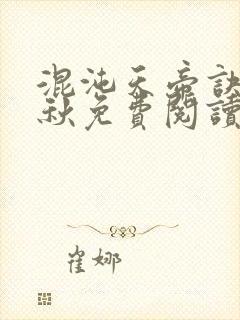 混沌天帝訣
秋免費閱讀
崔娜